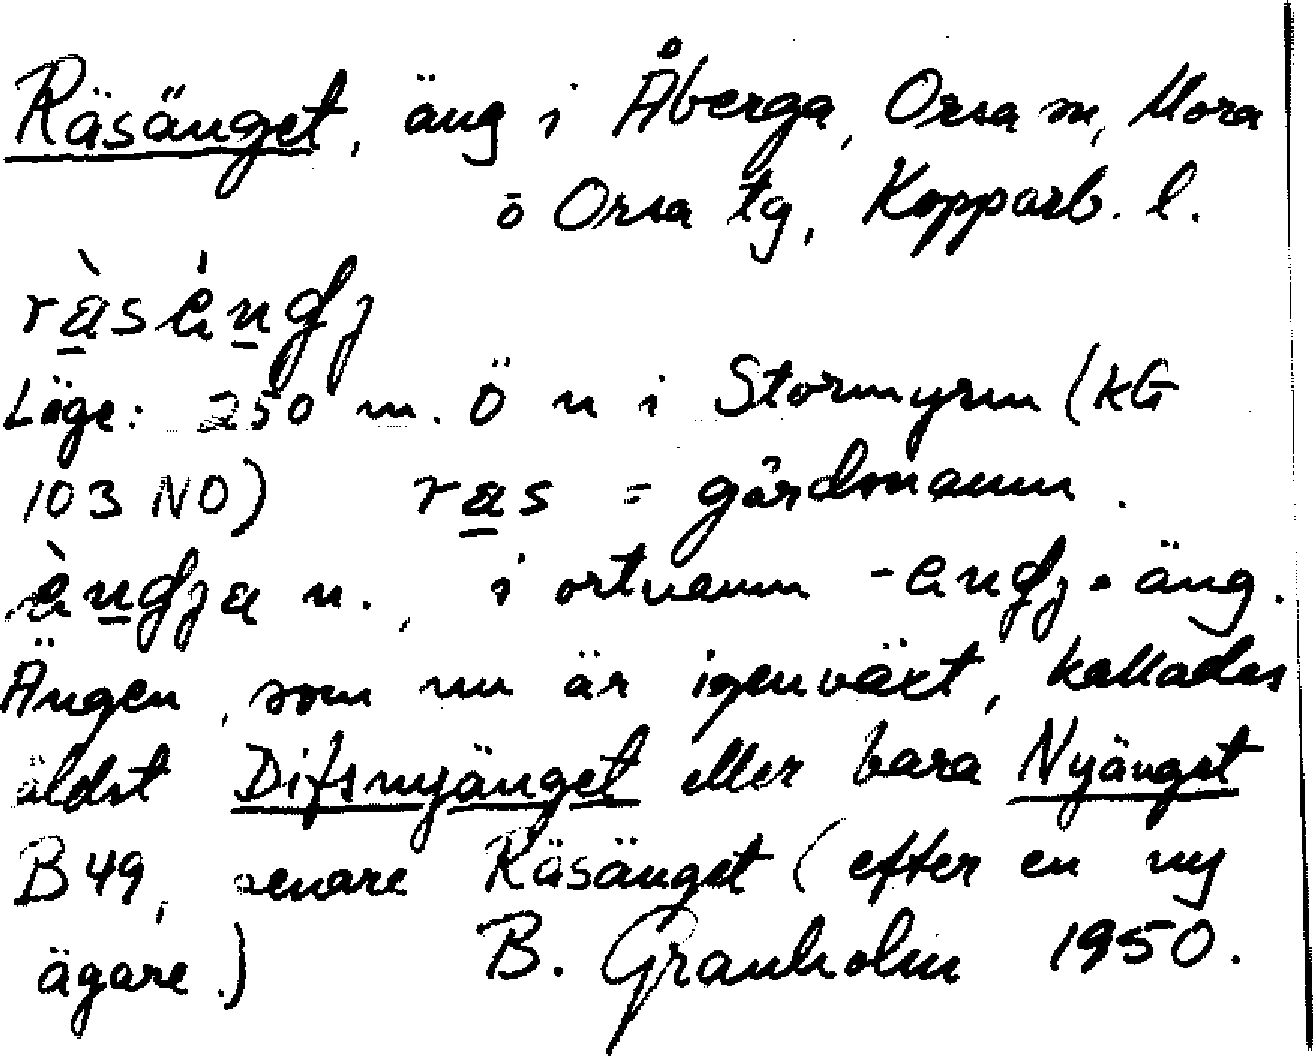 Räsänget, äng i Åberga, Orsa sn, Mora
o Orsa tg, Kopparb. l.
Läge: 250 m. Ö n i Stormyren (kG
103 NO) ras = gårdsnamn.
n., i ortnamn - äng.
Ängen, som nu är igenväxt, kallades
äldst Ditsnyänget eller bara Nyänget
B 49, senare Räsänget (efter en ny
ägare.) B. Granholm 1950.